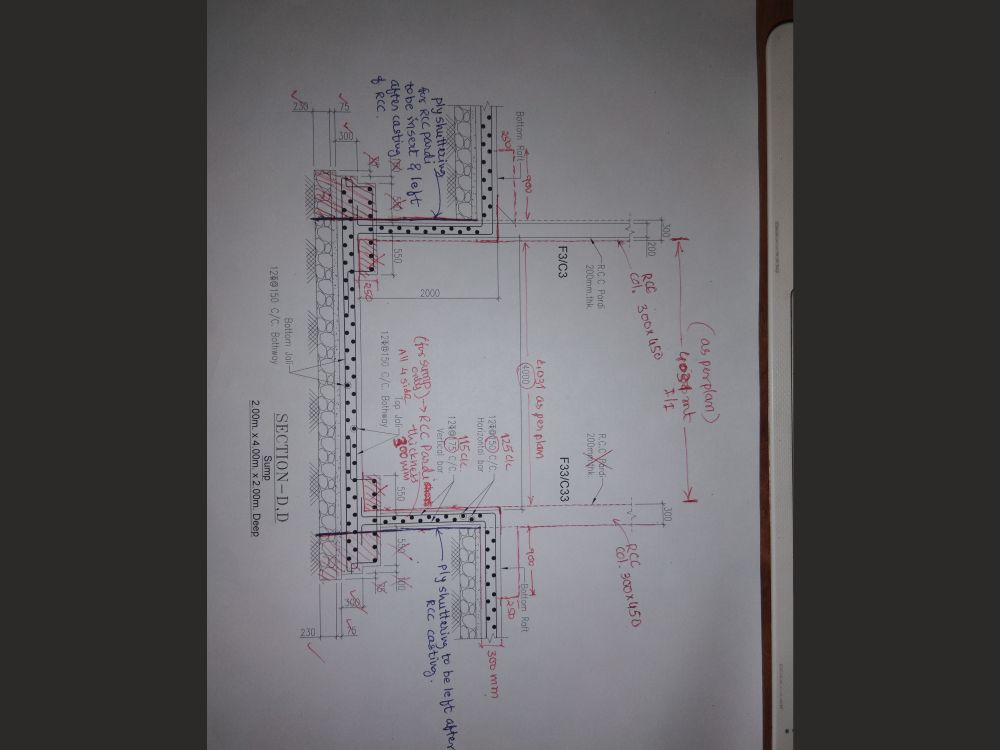 (as per plan)
4031 mt
I/I
300
200
300
RCC
col. 300x450
RCC
col. 300x450
R.C.C Pardi
200mm.thk
R.C.C Pardi
200mm.thk
F3/C3
F33/C33
4.031 as per plan
4000
Bottom Raft
250
900
900
Bottom Raft
250
300 mm
2000
ply shuttering
for RCC pardi
to be insert & left
after casting
of RCC.
125 c/c
12Φ@150 C/C.
Horizontal bar
115 c/c
12Φ@175 C/C.
Vertical bar
(for sump
only) → RCC Pardi
All 4 side
-thickness
300 mm
Top Jali
12Φ@150 C/C. Bothway
550
550
550
250
230
75
300
300
230
ply shuttering to be left after
RCC casting.
Bottom Jali
12Φ@150 C/C. Bothway
SECTION-D,D
Sump
2.00m. x 4.00m. x 2.00m. Deep